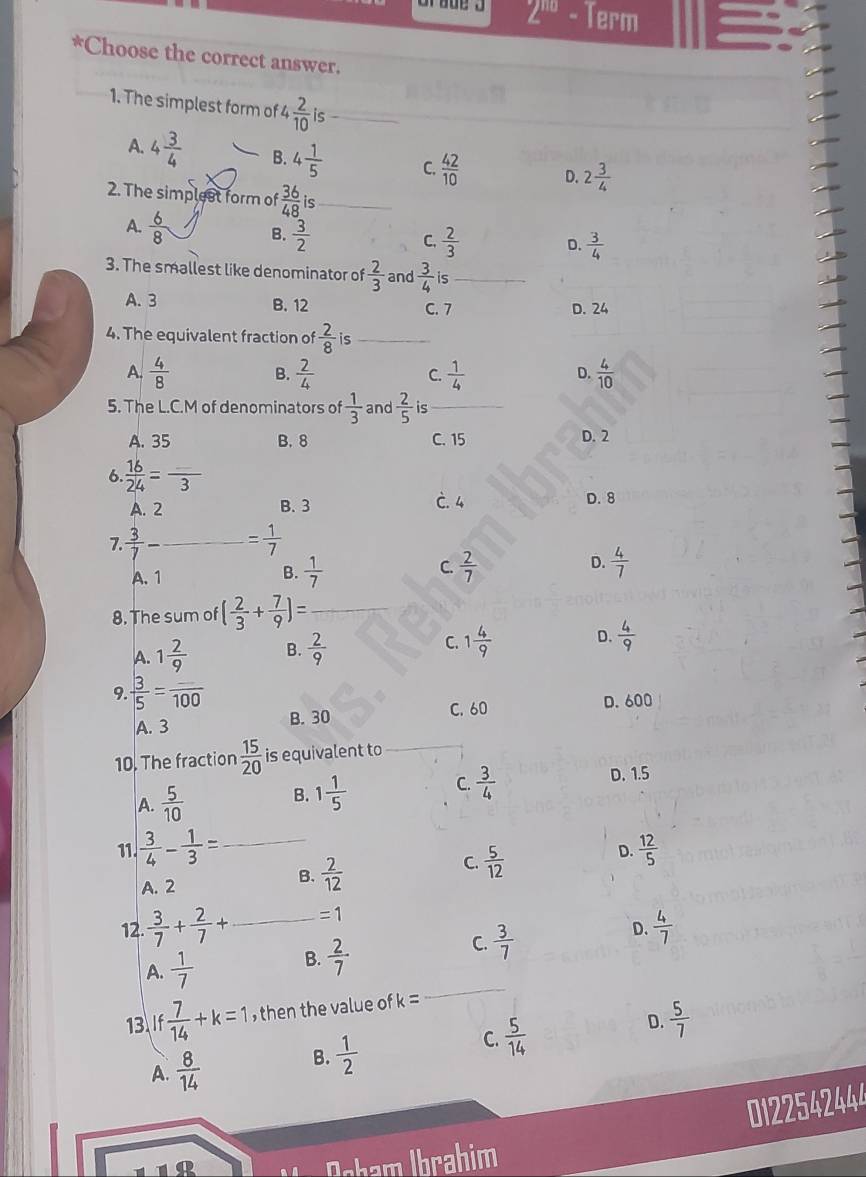 2nd - Term
*Choose the correct answer.
1. The simplest form of 4 2/10 is ______
A. 4 3/4 B. 4 1/5 C. 42/10 D. 2 3/4
2. The simplest form of 36/48 is ______
A. 6/8 B. 3/2 C. 2/3 D. 3/4
3. The smallest like denominator of 2/3 and 3/4 is ______
A. 3 B. 12 C. 7 D. 24
4. The equivalent fraction of 2/8 is ______
A. 4/8 B. 2/4 C. 1/4 D. 4/10
5. The L.C.M of denominators of 1/3 and 2/5 is ______
A. 35 B. 8 C. 15 D. 2
6. 16/24 = __/3
A. 2 B. 3 C. 4 D. 8
7. 3/7 - ______ = 1/7
A. 1 B. 1/7 C. 2/7 D. 4/7
8. The sum of (2/3 + 7/9) = ______
A. 1 2/9 B. 2/9 C. 1 4/9 D. 4/9
9. 3/5 = __/100
A. 3 B. 30 C. 60 D. 600
10. The fraction 15/20 is equivalent to ______
A. 5/10 B. 1 1/5 C. 3/4 D. 1.5
11. 3/4 - 1/3 = ______
A. 2 B. 2/12 C. 5/12 D. 12/5
12. 3/7 + 2/7 + ______ = 1
A. 1/7 B. 2/7 C. 3/7 D. 4/7
13. If 7/14 + k = 1, then the value of k = ______
A. 8/14 B. 1/2 C. 5/14 D. 5/7
Ms. Reham Ibrahim
0122542444
Ibrahim